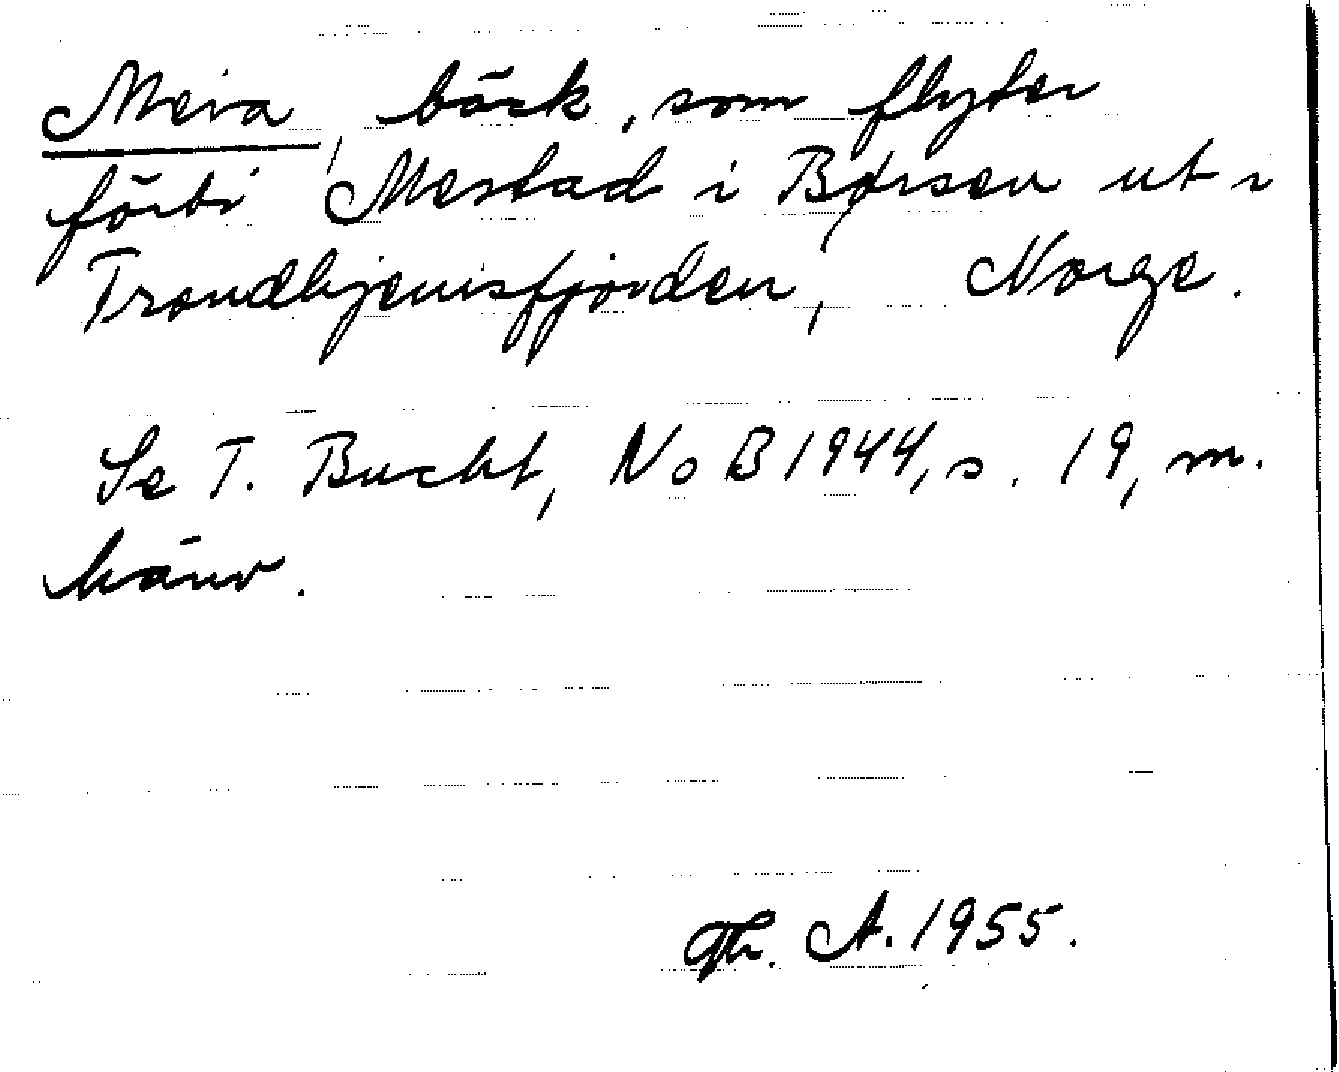 Meira, bäck, som flyter
förbi Mestad i Børsen ut i
Trondhjemsfjorden, Norge.
Se T. Bucht, NoB 1944, s. 19, m.
hänv.
Th. A. 1955.